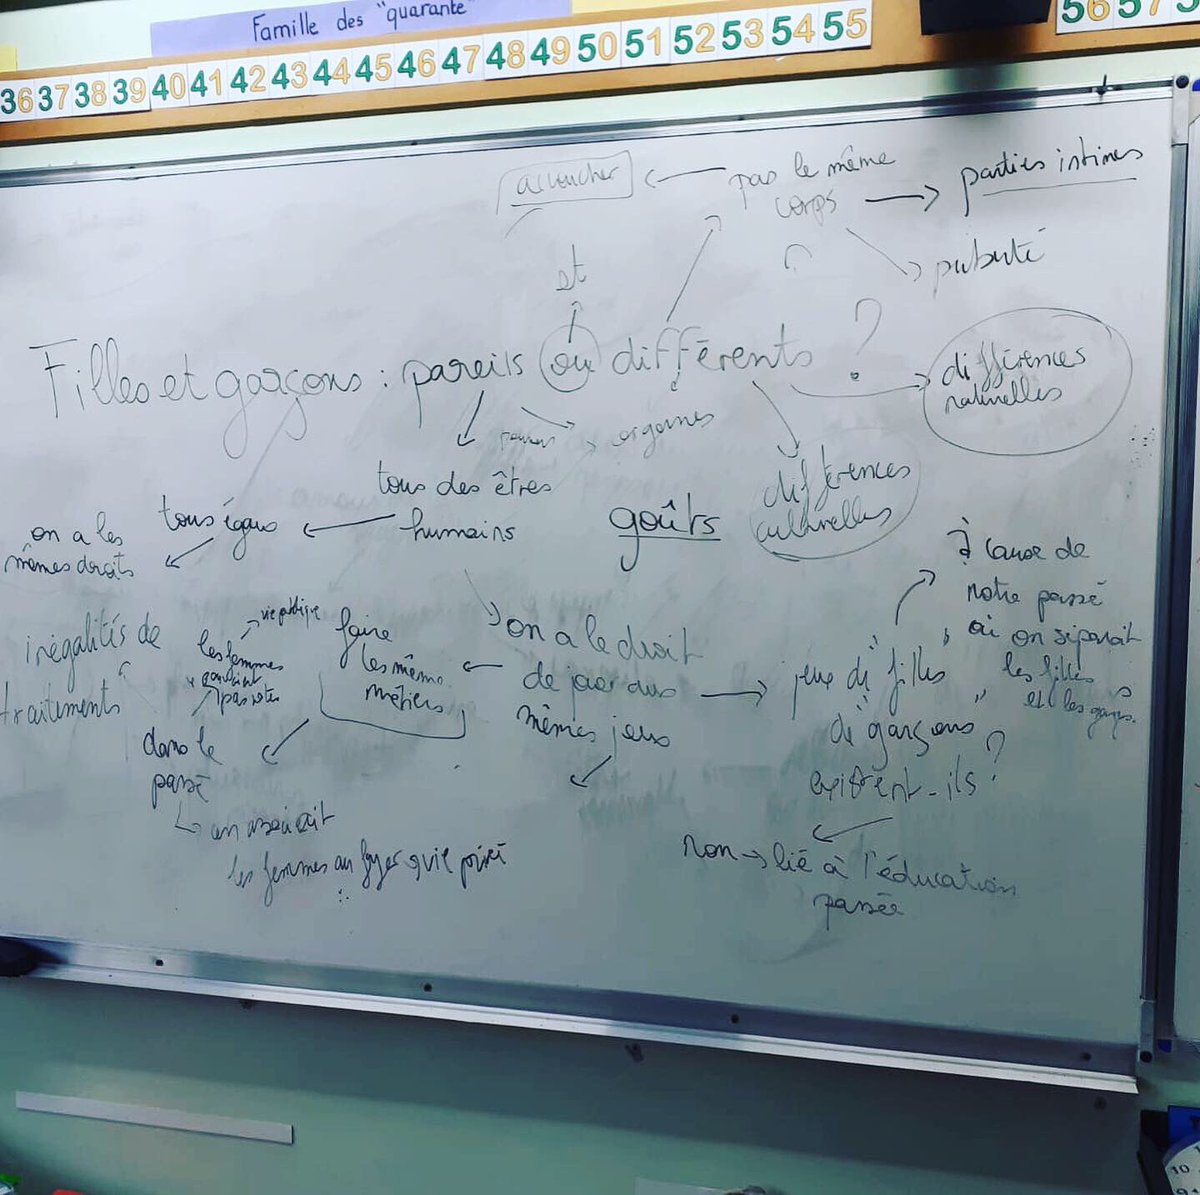 Famille des "quarante"
36 37 38 39 40 41 42 43 44 45 46 47 48 49 50 51 52 53 54 55
56 57
accoucher
pas le même
corps
parties intimes
puberté
et
Filles et garçons : pareils ou différents ?
différences
naturelles
organes
différences
culturelles
goûts
tous des êtres
humains
tous égaux
on a les
mêmes droits
inégalités de
traitements
vie publique
les femmes
pas votes
dans le
passé
les femmes au foyer
faire
les même
métiers
on a le droit
de jouer aux
mêmes jeux
jeux de "filles"
de "garçons"
existent-ils ?
à cause de
notre passé
où on séparait
les filles
et les garçons.
non → lié à l'éducation
passée